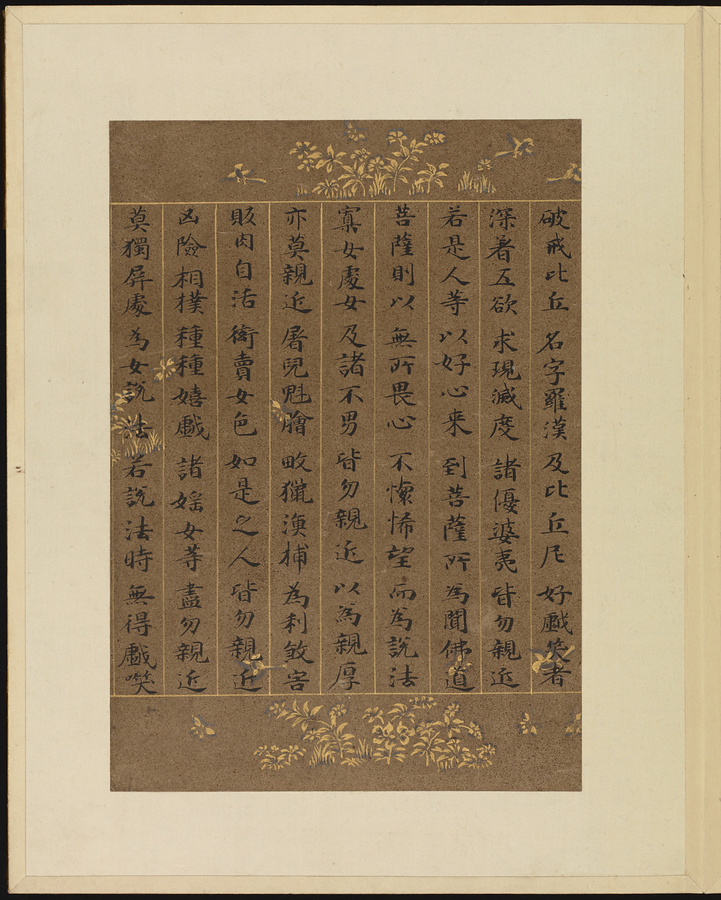 破戒比丘 名字羅漢 及比丘尼 好戲笑者
深著五欲 求現滅度 諸優婆夷 皆勿親近
若是人等 以好心来 到菩薩所 為聞佛道
菩薩則以 無所畏心 不懷悕望 而為說法
寡女處女 及諸不男 皆勿親近 以為親厚
亦莫親近 屠兒魁膾 畋獵漁捕 為利煞害
販肉自活 衒賣女色 如是之人 皆勿親近
凶險相撲 種種嬉戲 諸婬女等 盡勿親近
莫獨屏處 為女說法 若說法時 無得戲唉